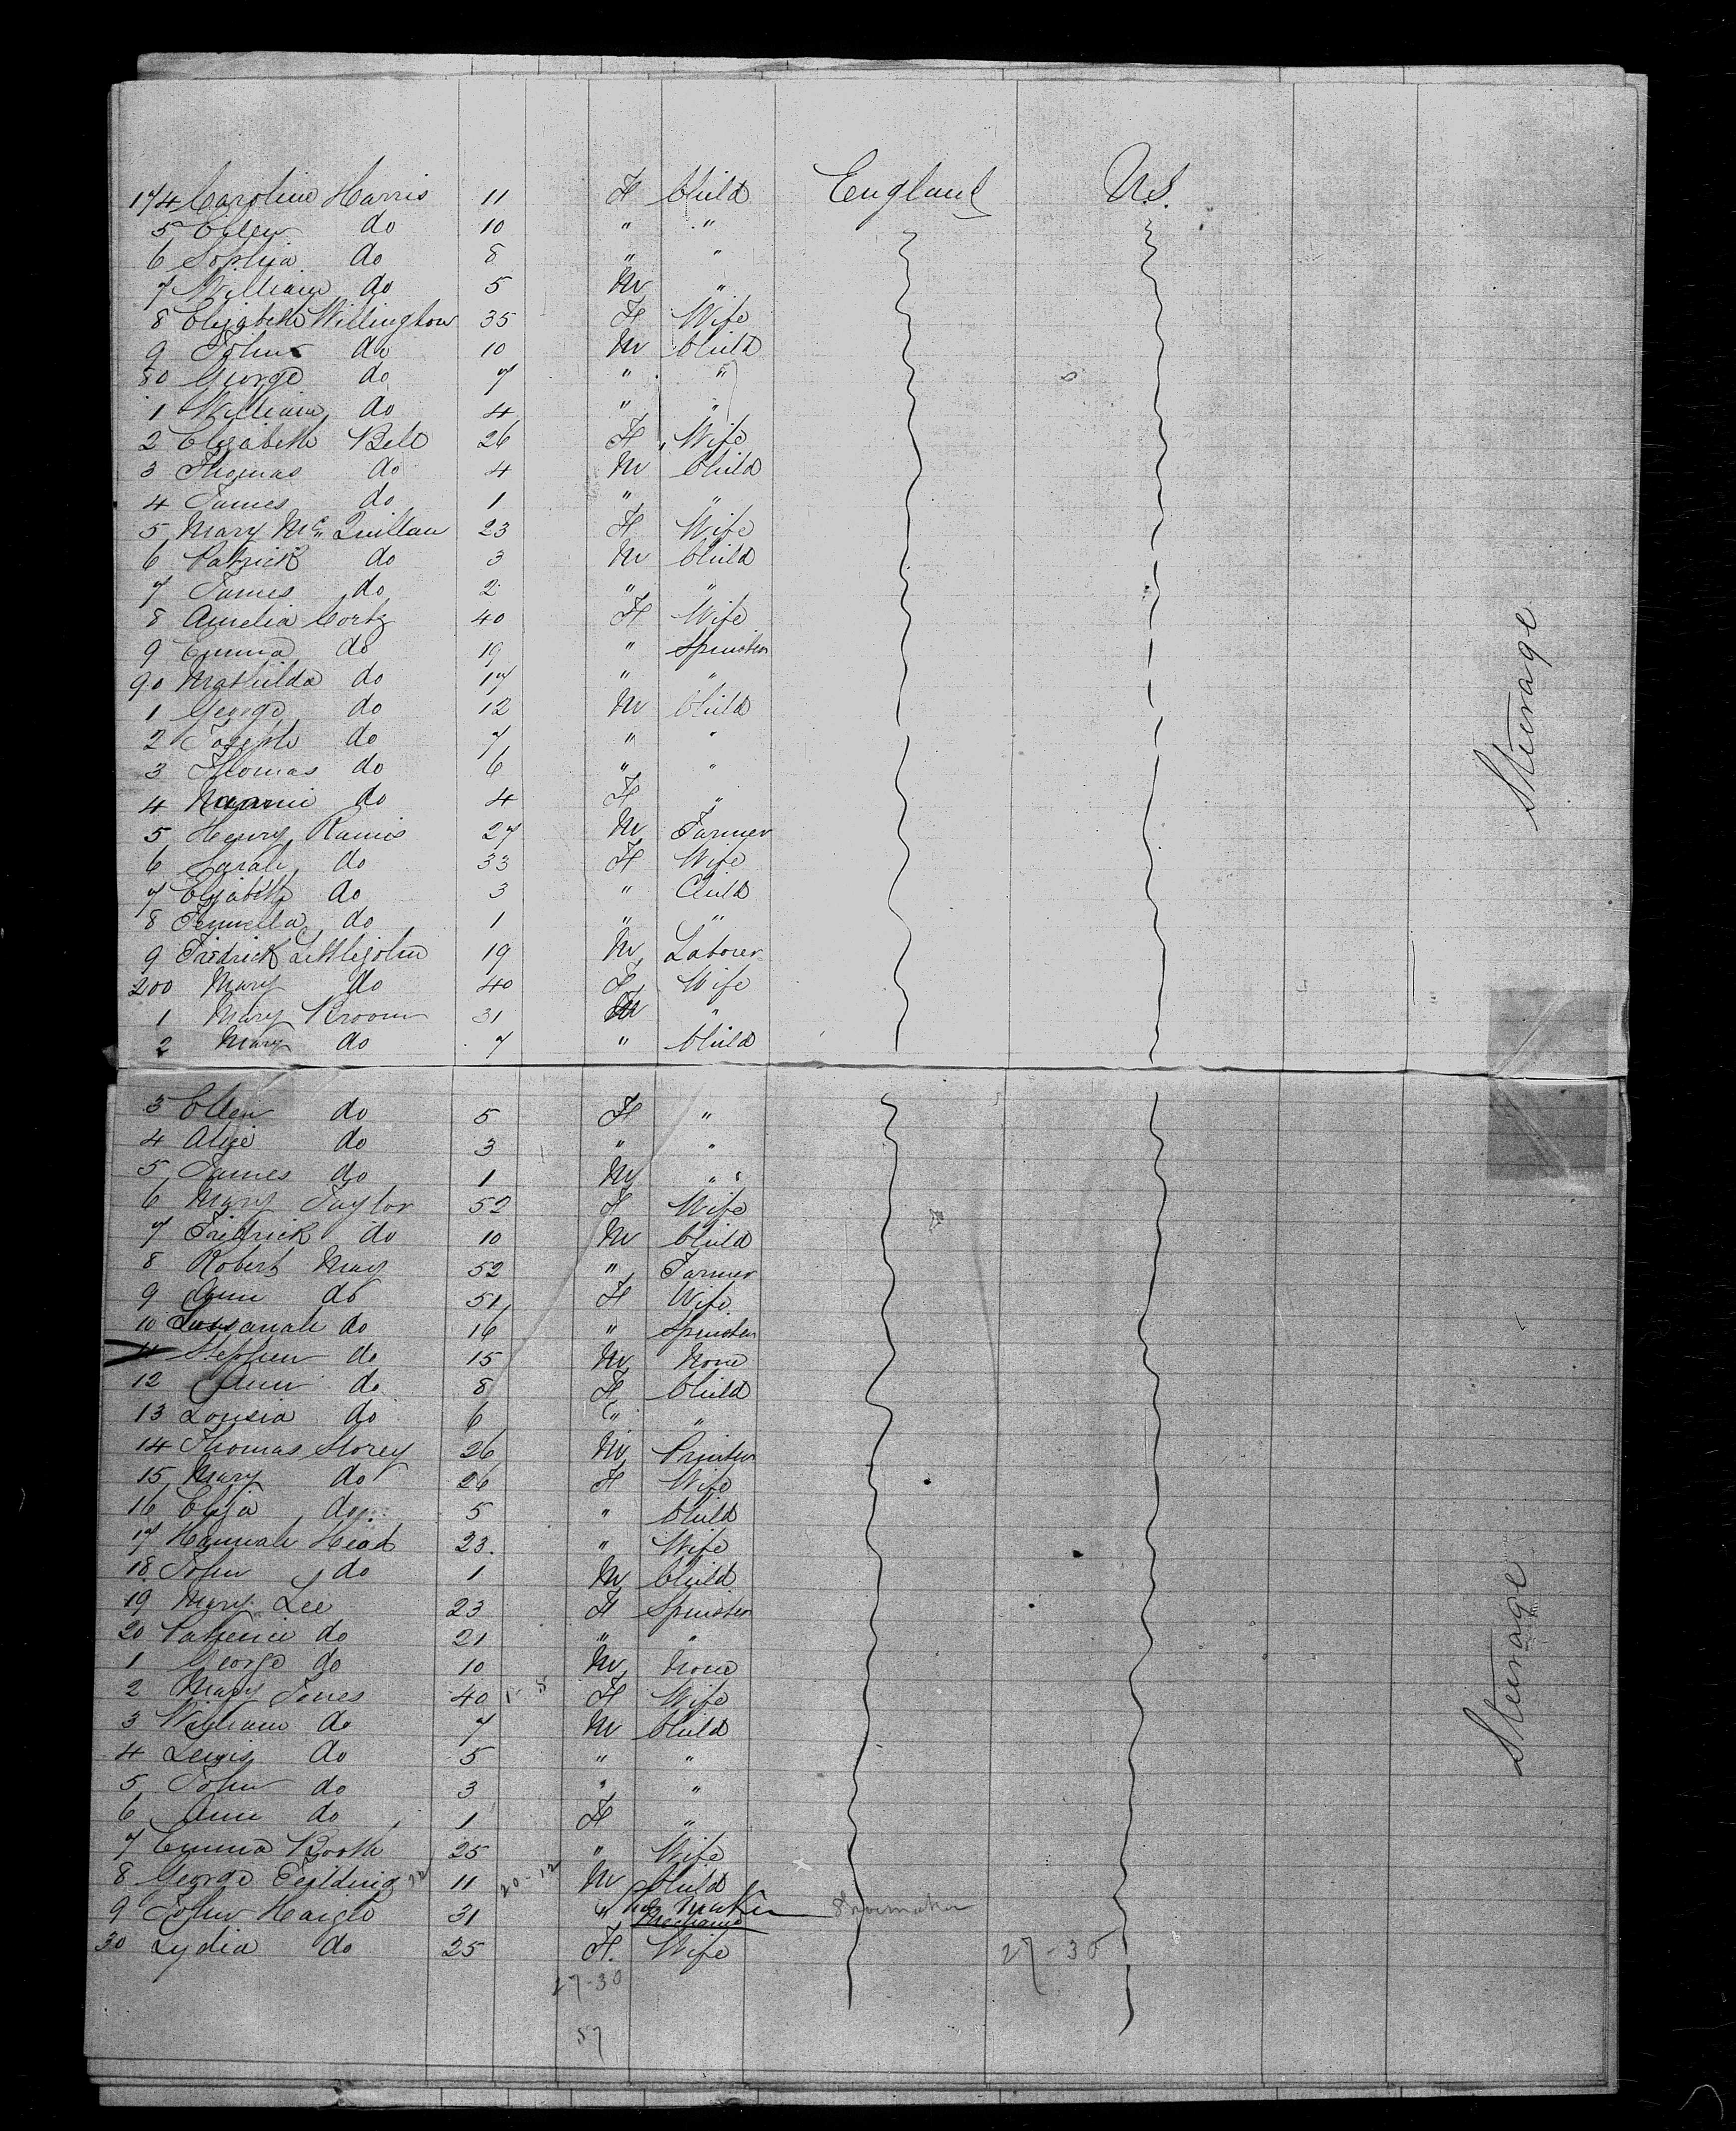 174 Caroline Harris 11 F Child England U.S.
5 Ellen do 10 " "
6 Sophia do 8 " "
7 William do 5 M "
8 Elizabeth Willington 35 F Wife
9 John do 10 M Child
80 George do 7 " "
1 William do 4 " "
2 Elizabeth Bell 26 F Wife
3 Thomas do 4 M Child
4 James do 1 " "
5 Mary Mc Quillan 23 F Wife
6 Patrick do 3 M Child
7 James do 2 " "
8 Amelia Cortz 40 F Wife
9 Emma do 19 " Spinster
90 Mathilda do 17 " "
1 George do 12 M Child
2 Joseph do 7 " "
3 Thomas do 6 " "
4 do 4 F "
5 Henry Ramis 27 M Farmer
6 Sarah do 33 F Wife
7 Elizabeth do 3 " Child
8 do 1 " "
9 Fredrick Littlejohn 19 M Laborer
200 Mary do 40 F Wife
1 Mary Broom 31 "
2 Mary do 7 " Child
3 Ellen do 5 F "
4 Alice do 3 " "
5 James do 1 M "
6 Mary Taylor 52 F Wife
7 Fridrick do 10 M Child
8 Robert May 52 " Farmer
9 Ann do 51 F Wife
10 do 16 " Spinster
11 Stephen do 15 M None
12 Ann do 8 F Child
13 Lousia do 6 " "
14 Thomas Storey 26 M Printer
15 Mary do 26 F Wife
16 Eliza do 5 " Child
17 Hannah Head 23 " Wife
18 John do 1 M Child
19 Mary Lee 23 F Spinster
20 Patience do 21 " "
1 George do 10 M None
2 Mary Jones 40 F Wife
3 William do 7 M Child
4 Lewis do 5 " "
5 John do 3 " "
6 Ann do 1 F "
7 Emma Booth 25 " Wife
8 George Feilding 11 20-12 M Child
9 John Haigh 31 " Maker Mechanic Shoemaker
30 Lydia do 25 F. Wife 27-30
27-30
57
Steerage
Steerage